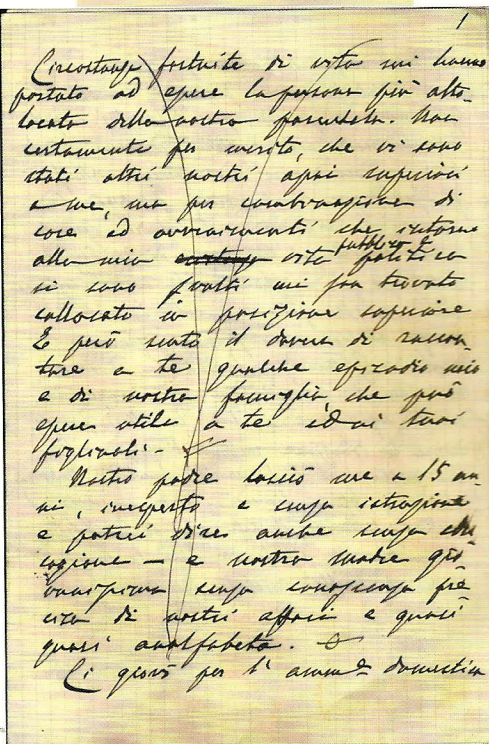 1
Circostanze fortuite di vita mi hanno
portato ad essere la persona più alto
locata della nostra parentela. Non
certamente per merito, che vi sono
stati altri nostri assai superiori
a me, ma per combinazione di
cose ed avvenimenti che intorno
alla mia vita pubblica e politica
si sono svolti mi son trovato
collocato in posizione superiore
E però sento il dovere di raccon-
tare a te qualche episodio mio
e di nostra famiglia, che può
essere utile a te ed ai tuoi
figliuoli -
Nostro padre lasciò me a 15 an-
ni, inesperto e senza istruzione
e potrei dire anche senza edu
cazione — e nostra madre gio
vanissima senza conoscenza pre
cisa di nostri affari e quasi
quasi analfabeta.
Ci giovò per l' amm.e domestica